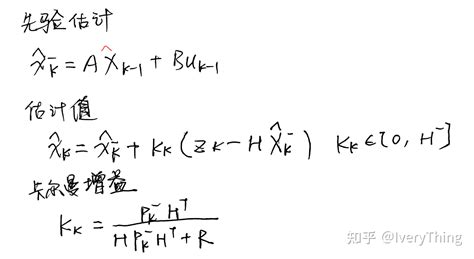 先验估计
x̂ₖ⁻ = A x̂ₖ₋₁ + Buₖ₋₁
估计值
x̂ₖ = x̂ₖ⁻ + Kₖ (zₖ − H x̂ₖ⁻) Kₖ ∈ [0, H⁻]
卡尔曼增益
Kₖ = Pₖ⁻Hᵀ / (HPₖ⁻Hᵀ + R)
知乎 @IveryThing